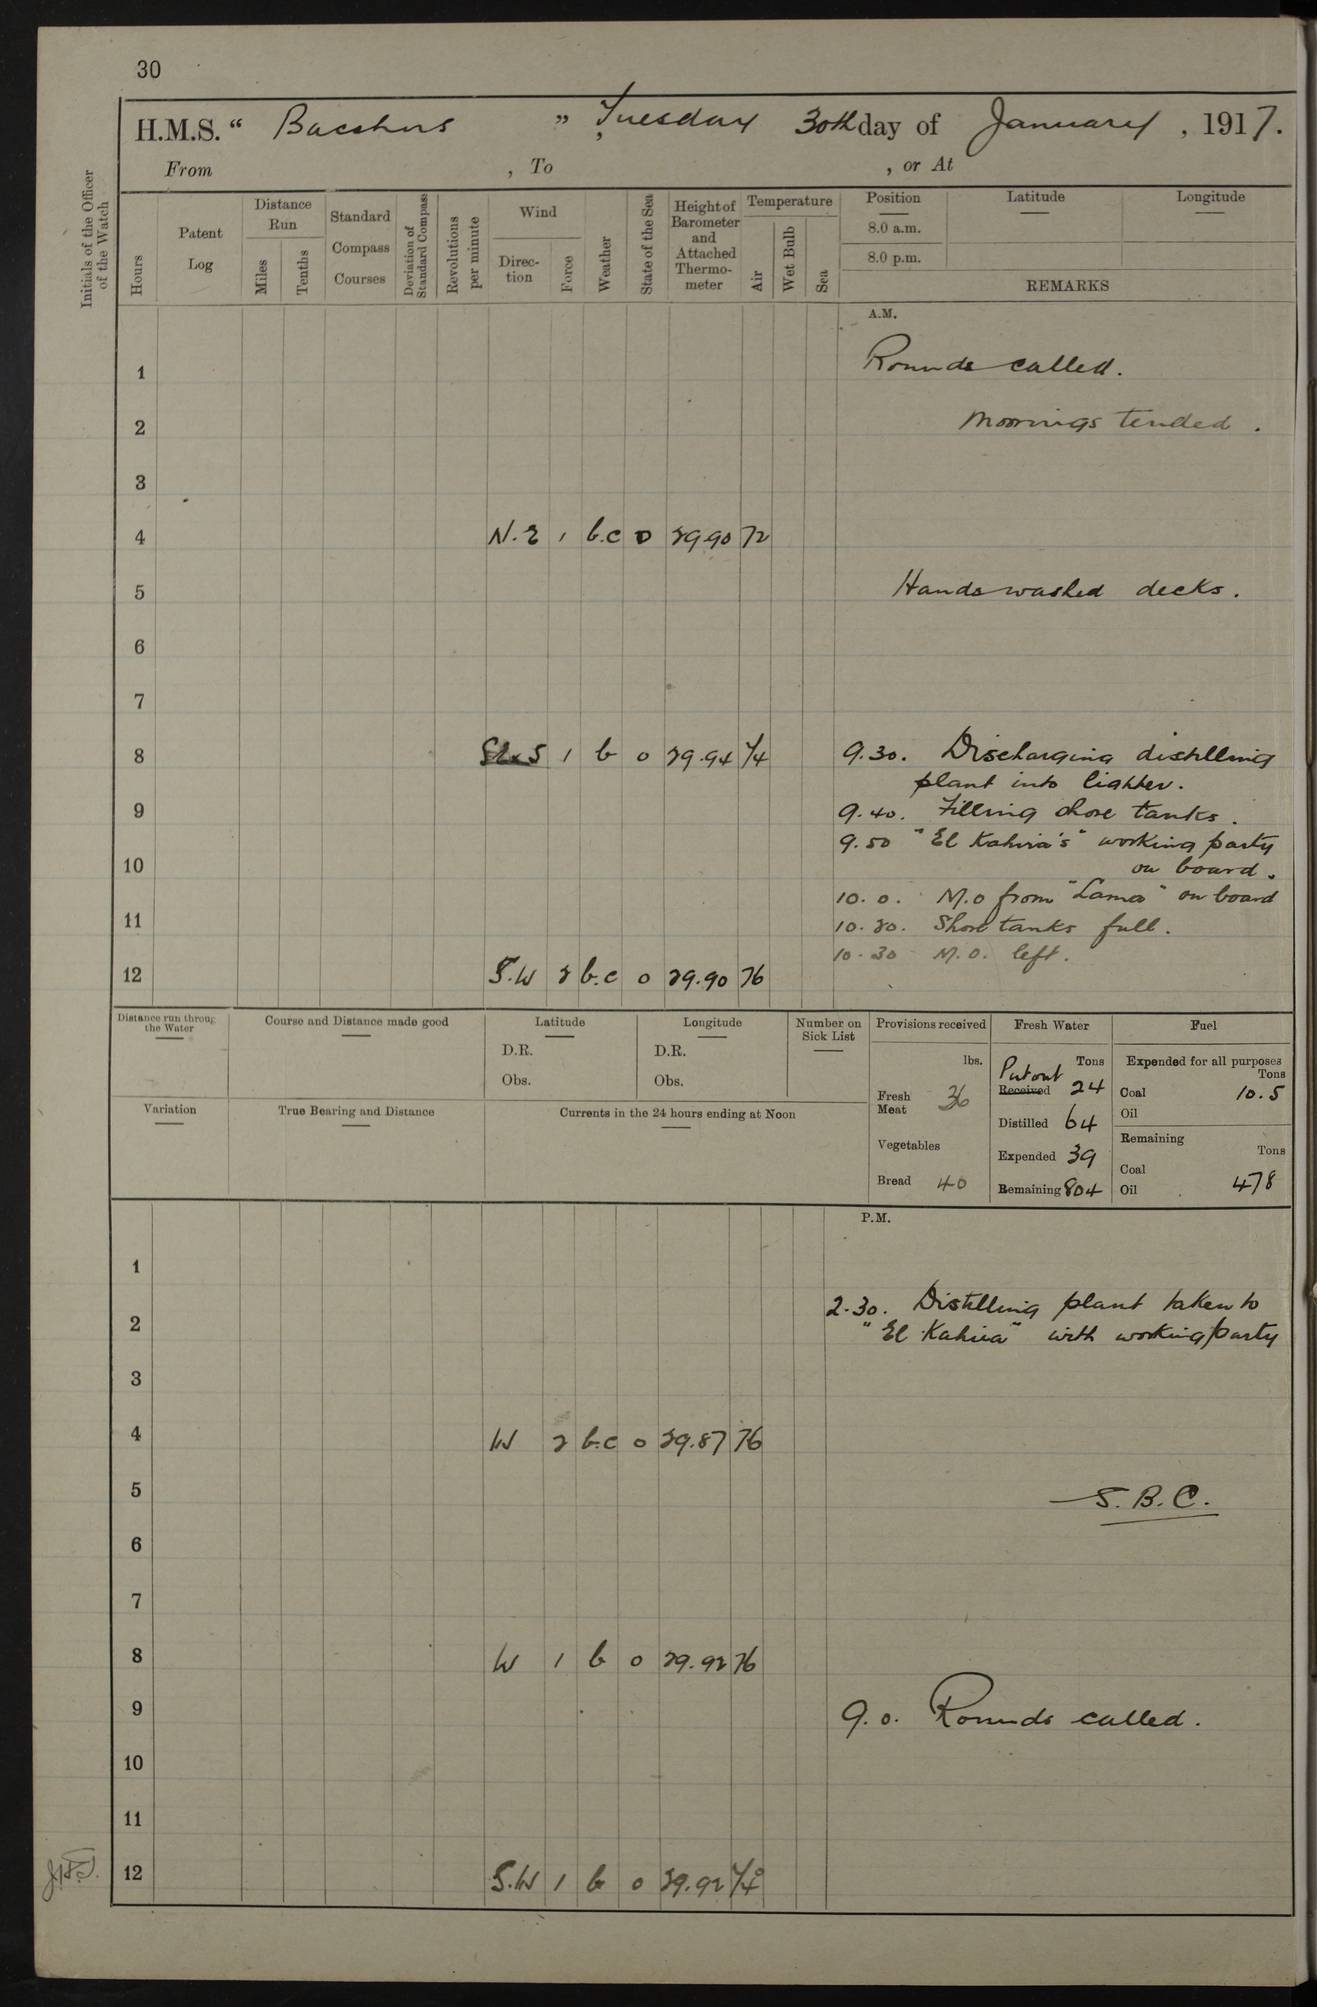 30
H.M.S. “ Bacchus ” Tuesday 30th day of January , 1917.
From , To , or At
Initials of the Officer of the Watch
Hours
Patent Log
Distance Run
Miles
Tenths
Standard Compass Courses
Deviation of Standard Compass
Revolutions per minute
Wind
Direction
Force
Weather
State of the Sea
Height of Barometer and Attached Thermometer
Temperature
Air
Wet Bulb
Sea
Position
8.0 a.m.
8.0 p.m.
Latitude
Longitude
REMARKS
A.M.
1 Rounds called.
2 Moorings tended.
3
4 N.E 1 b.c 0 29.90 72
5 Hands washed decks.
6
7
8 S 1 b 0 29.94 74 9.30. Discharging distilling
plant into lighter.
9 9.40. Filling shore tanks.
9.50 "El Kahira's" working party
10 on board.
10.0. M.O from "Lama" on board
11 10.20. Shore tanks full.
10.30 M.O. left.
12 S.W 2 b.c 0 29.90 76
Distance run through the Water
Course and Distance made good
Latitude
D.R.
Obs.
Longitude
D.R.
Obs.
Number on Sick List
Provisions received
lbs.
Fresh Meat 36
Vegetables
Bread 40
Fresh Water
Tons
Put out
Received 24
Distilled 64
Expended 39
Remaining 804
Fuel
Expended for all purposes
Tons
Coal 10.5
Oil
Remaining
Tons
Coal
Oil 478
Variation
True Bearing and Distance
Currents in the 24 hours ending at Noon
P.M.
1
2.30. Distilling plant taken to
2 "El Kahira" with working party
3
4 W 2 b.c 0 29.87 76
5 S.B.C.
6
7
8 W 1 b 0 29.92 76
9 9.0. Rounds called.
10
11
12 S.W 1 b 0 29.92 74